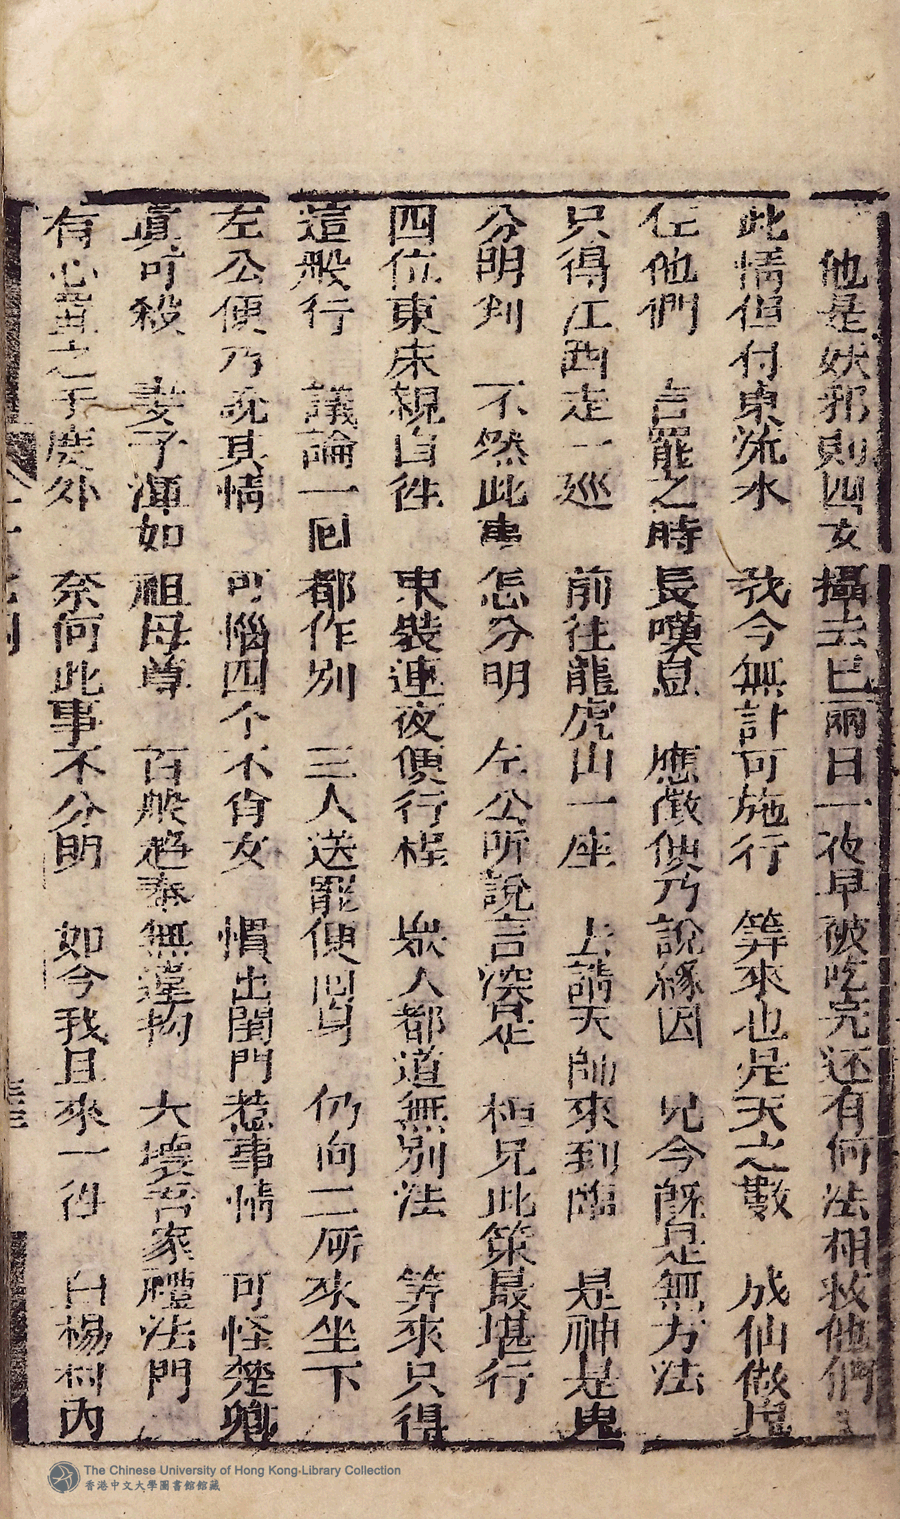 他是妖邪則四女攝去已兩日一夜早被吃完还有何法相救他們
此情但付東流水 我今無計可施行 筭來也是天之數 成仙做鬼
任他們 言罷之時長嘆息 應徵便乃說緣因 兄今旣是無方法
只得江西走一廵 前往龍虎山一座 上請天師來到臨 是神是鬼
分明判 不然此事怎分明 左公所說言深是 桓兄此策最堪行
四位東床親自徃 東裝連夜便行桯 衆人都道無別法 筭來只得
這般行 議論一囘都作别 三人送罷便囘身 仍向二所來坐下
左公便乃說其情 可惱四个不肖女 慣出閨門惹事情 可怪楚卿
眞可殺 妻子渾如祖母尊 百般趋奉無違拗 大壞吾家禮法門
有心置之于度外 奈何此事不分明 如今我且來一徃 白楊村內
The Chinese University of Hong Kong-Library Collection
香港中文大學圖書館館藏